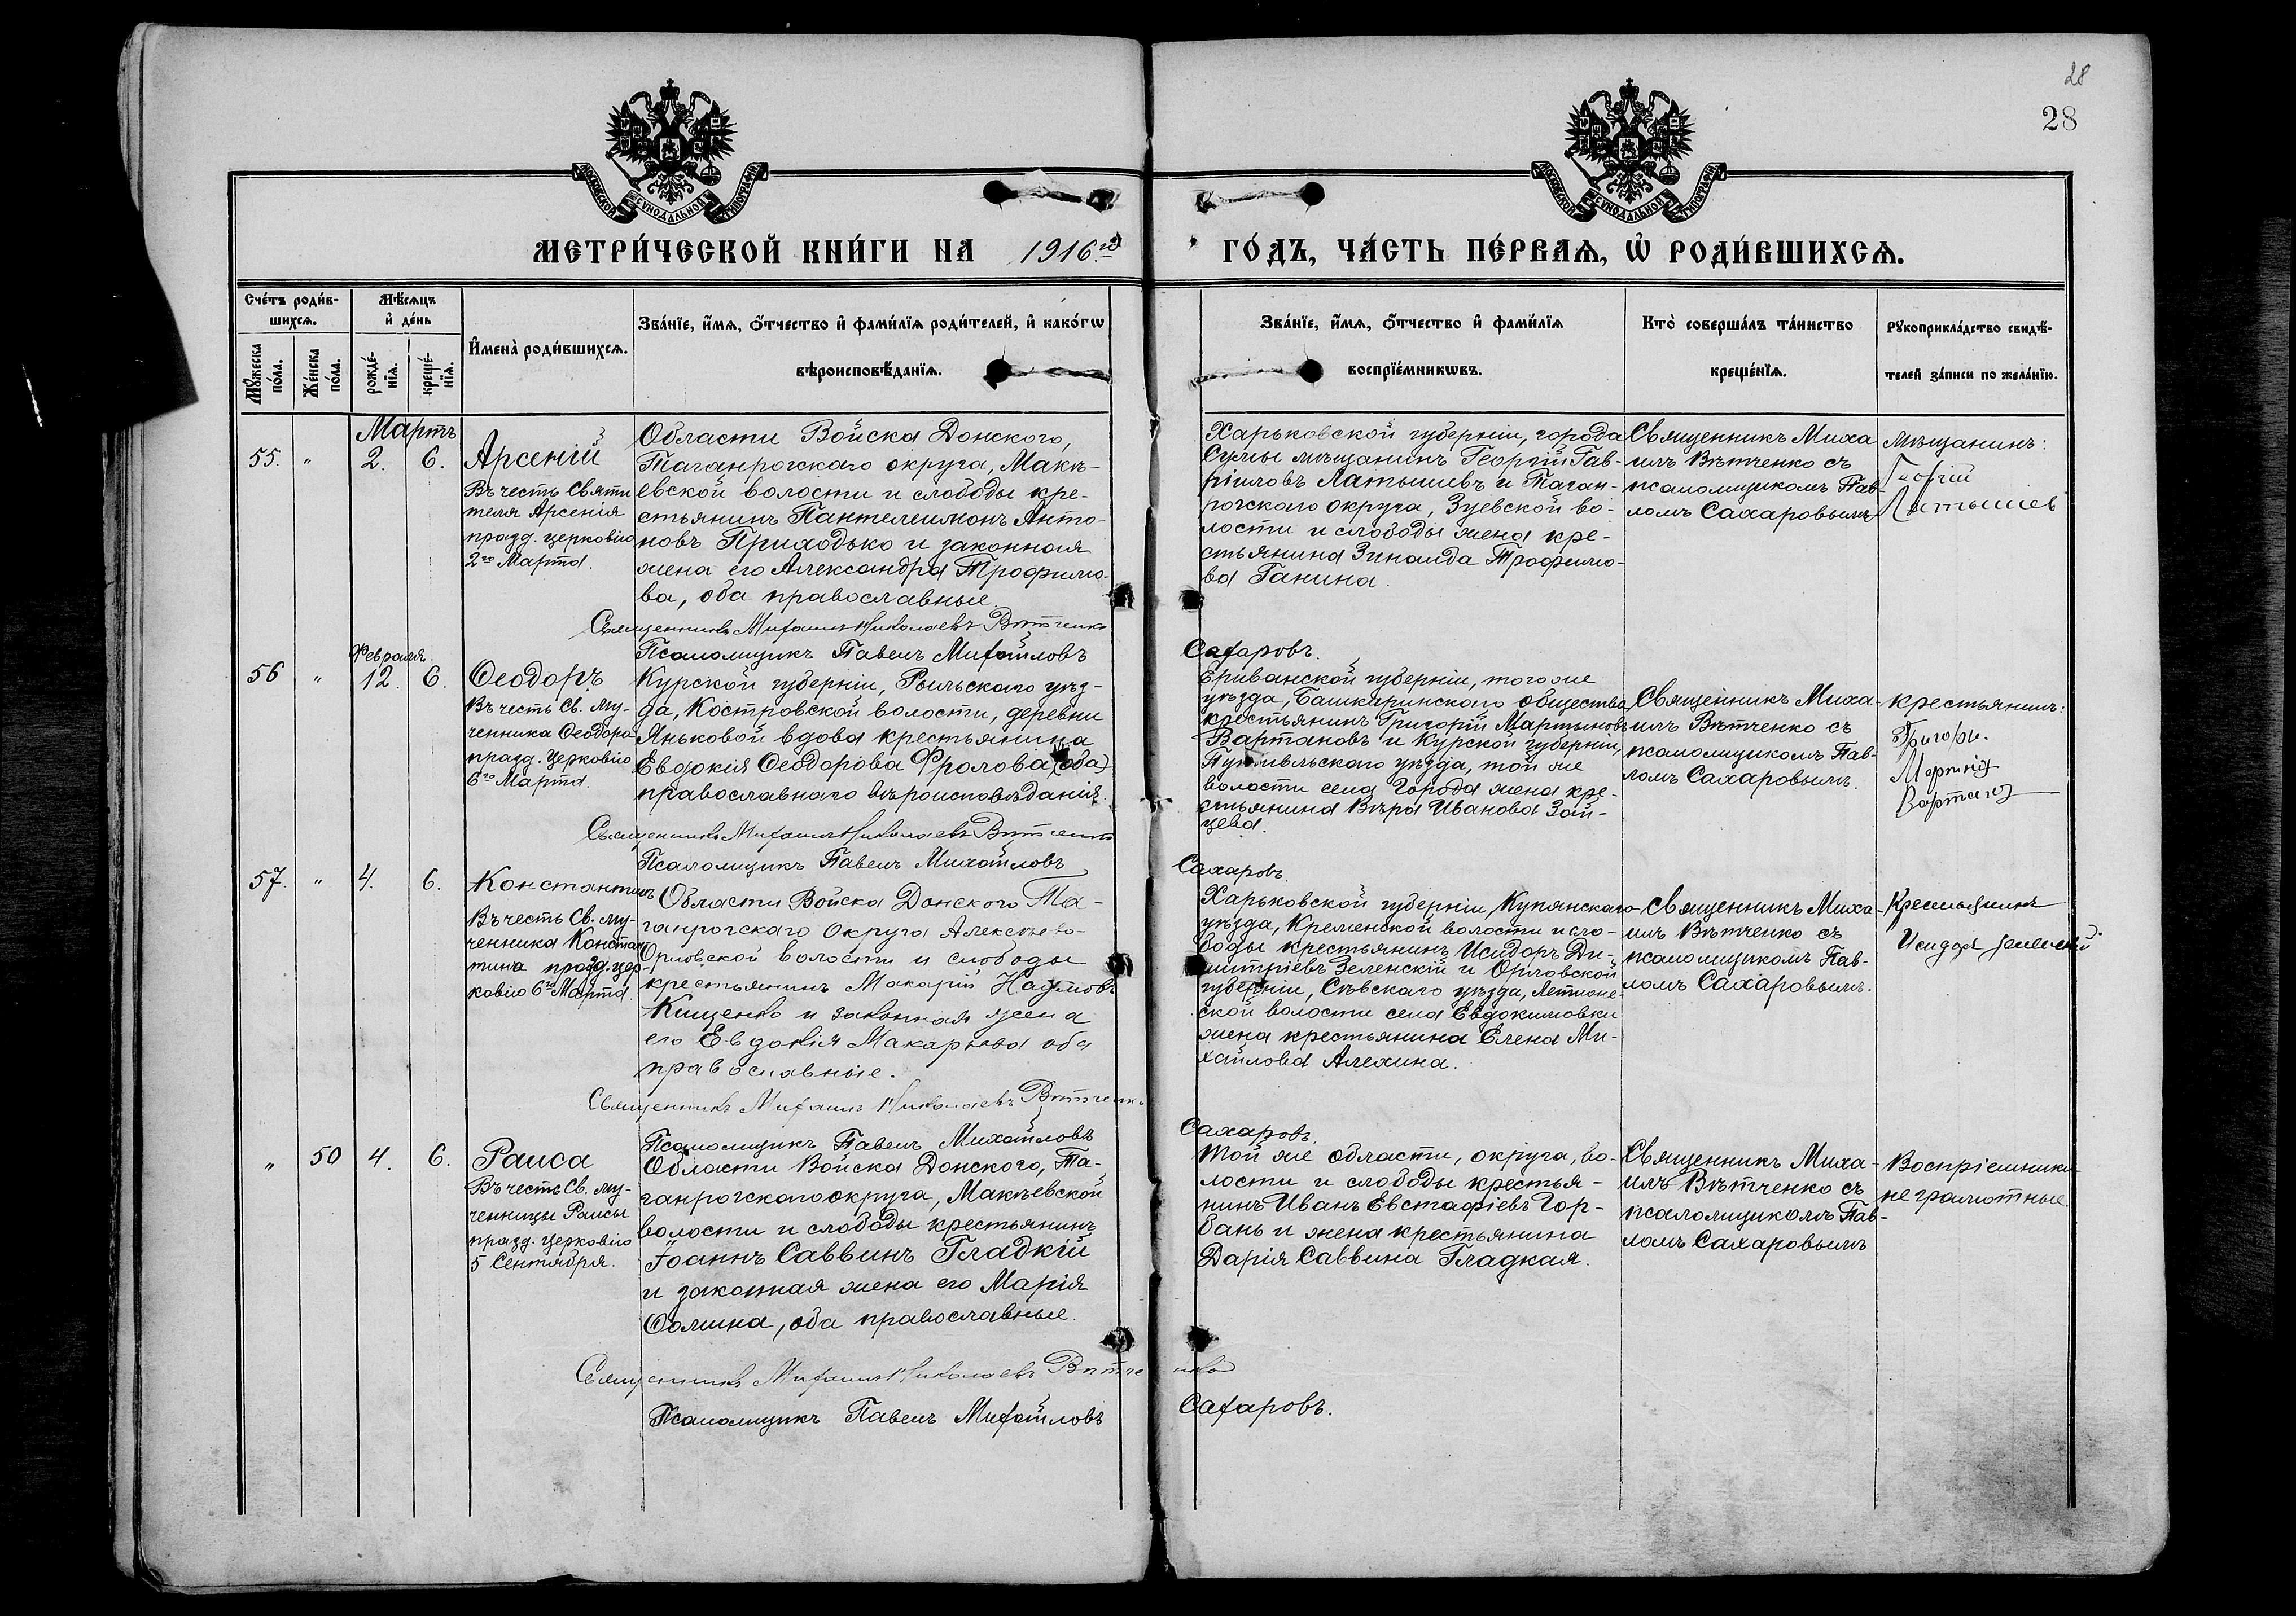 28
28
МОСКОВСКОЙ СУНОДАЛЬНОЙ ТИПОГРАФІИ
МОСКОВСКОЙ СУНОДАЛЬНОЙ ТИПОГРАФІИ
МЕТРИ́ЧЕСКОЙ КНИ́ГИ НА 1916го
ГО́ДЪ, ЧА́СТЬ ПЕ́РВАѦ, Ѽ РОДИ́ВШИХСѦ.
Сче́тъ роди́в-
шихсѧ.
Мꙋ́жеска по́ла.
Же́нска по́ла.
Мѣ́сѧцъ
и҆ де́нь
рожде́-
нїѧ.
креще́-
нїѧ.
И҆мена̀ роди́вшихсѧ.
Зва́нїе, и҆́мѧ, ѻ҆́тчество и҆ фами́лїѧ роди́телей, и҆ како́гѡ
вѣроисповѣ́данїѧ.
Зва́нїе, и҆́мѧ, ѻ҆́тчество и҆ фами́лїѧ
воспрїе́мникѡвъ.
Кто̀ соверша́лъ та́инство
креще́нїѧ.
Рꙋкоприкла́дство свидѣ́-
телей за́писи по жела́нїю.
Мартъ
55. " 2. 6.
Арсеній
Въ честь Святи
теля Арсенія
празд. церковію
2го Марта.
Области Войска Донского,
Таганрогскаго округа, Макѣ-
евской волости и слободы кре-
стьянинъ Пантелеимонъ Анто-
новъ Приходько и законная
жена его Александра Трофимо-
ва, оба православные.
Священникъ Михаилъ Николаевъ Вѣтченко
Псаломщикъ Павелъ Михайловъ Сахаровъ.
Харьковской губерніи, города
Сумы мѣщанинъ Георгій Гав-
ріиловъ Латышевъ и Таган-
рогскаго округа, Зуевской во-
лости и слободы жена кре-
стьянина Зинаида Трофимо-
ва Ганина.
Священникъ Миха
илъ Вѣтченко съ
псаломщикомъ Пав-
ломъ Сахаровымъ
Мѣщанинъ:
Георгій
Латышев
Февраля.
56 " 12. 6.
Ѳеодоръ
Въ честь Св. му-
ченника Ѳеодора
празд. Церковію
6го Марта.
Курской губерніи, Рыльскаго уѣз-
да, Костровской волости, деревни
Яньковой вдова крестьянина
Евдокія Ѳеодорова Фролова (оба)
православнаго вѣроисповѣданія.
Священникъ Михаилъ Николаевъ Вѣтченко
Псаломщикъ Павелъ Михайловъ Сахаровъ.
Ериванской губерніи, того же
уѣзда, Башкаринскаго общества
крестьянинъ Григорій Мартыновъ
Вартановъ и Курской губерніи,
Путивльскаго уѣзда, той же
волости села Города жена кре-
стьянина Вѣра Иванова Зай-
цева.
Священникъ Миха-
илъ Вѣтченко съ
псаломщикомъ Пав-
ломъ Сахаровымъ.
крестьянинъ:
57. " 4. 6.
Константинъ
Въ честь Св. му-
ченника Констан
тина празд. цер-
ковію 6го Марта.
Области Войска Донского Та-
ганрогскаго Округа Алексѣево-
Орловской волости и слободы
крестьянинъ Макарій Наумовъ
Кищенко и законная жена
его Евдокія Макарьева оба
православные.
Священникъ Михаилъ Николаевъ Вѣтченко
Псаломщикъ Павелъ Михайловъ Сахаровъ.
Харьковской губерніи, Купянскаго
уѣзда, Кременской волости и сло-
боды крестьянинъ Исидоръ Ди-
митріевъ Зеленскій и Орловской
губерніи, Сѣвскаго уѣзда,
ской волости села Евдокимовки
жена крестьянина Елена Ми-
хайлова Алехина.
Священникъ Миха-
илъ Вѣтченко съ
псаломщикомъ Пав-
ломъ Сахаровымъ.
Крестьянинъ
Исидоръ Зеленскій
" 50 4. 6.
Раиса
Въ честь Св. му-
ченницы Раисы
празд. церковію
5 Сентября.
Области Войска Донского, Та-
ганрогскаго округа, Макѣевской
волости и слободы крестьянинъ
Іоаннъ Саввинъ Гладкій
и законная жена его Марія
Ѳомина, оба православные.
Священникъ Михаилъ Николаевъ Вѣтченко
Псаломщикъ Павелъ Михайловъ Сахаровъ.
Той же области, округа, во-
лости и слободы крестья-
нинъ Иванъ Евстафіевъ Гор-
бань и жена крестьянина
Дарія Саввина Гладкая.
Священникъ Миха-
илъ Вѣтченко съ
псаломщикомъ Пав-
ломъ Сахаровымъ
Воспріемники
не грамотные